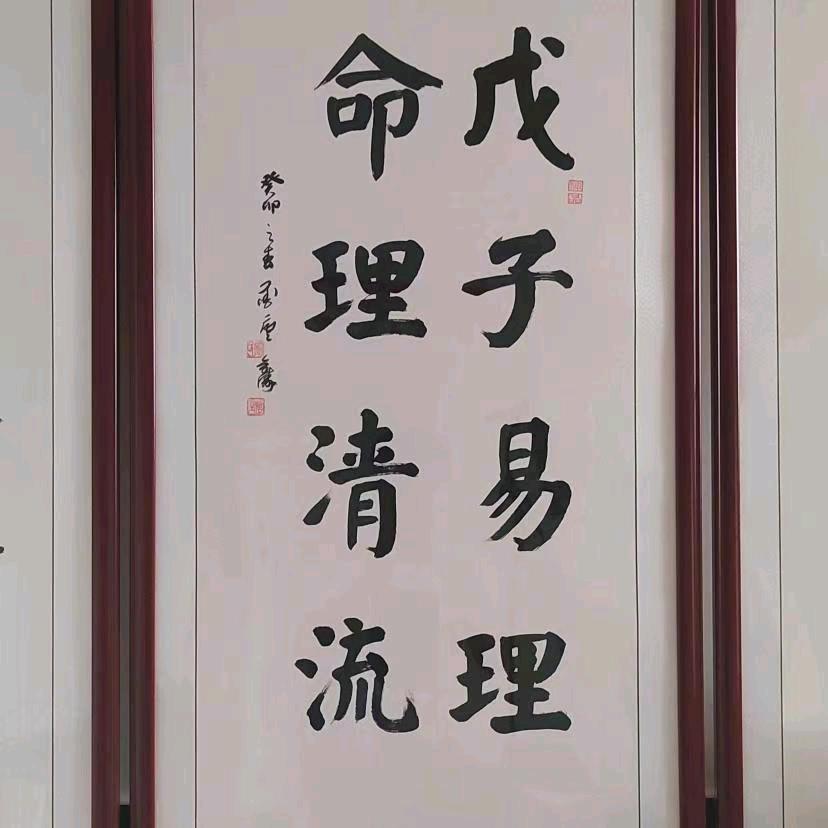 戊子易理
命理清流
癸卯之春